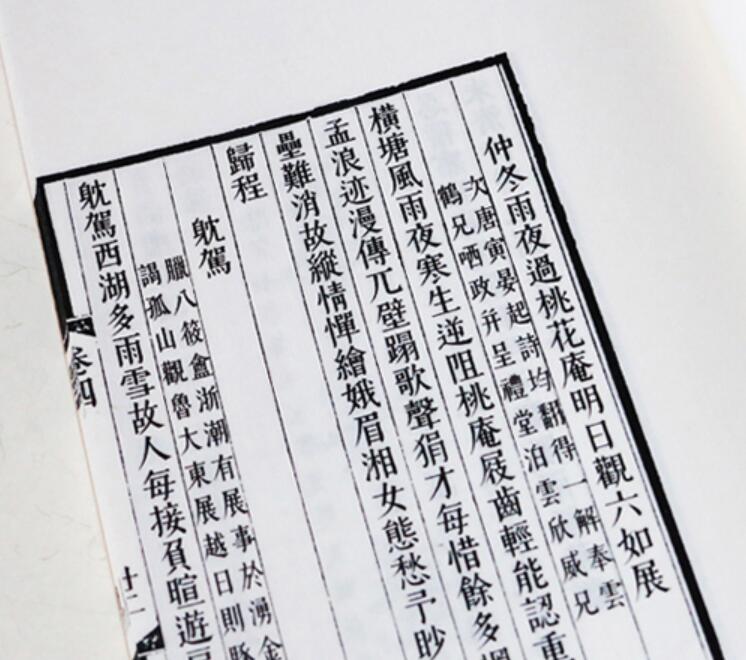 仲冬雨夜過桃花庵明日觀六如展
次唐寅晏起詩均翻得一解奉雲
鶴兄哂政并呈禮堂泊雲欣威兄
橫塘風雨夜寒生逆阻桃庵屐齒輕能認重
孟浪迹漫傳兀壁蹋歌聲狷才每惜餘多
壘難消故縱情憚繪娥眉湘女態愁予眇
歸程
躭駕
臘八筱盦浙潮有展事於湧金
謁孤山觀魯大東展越日則
躭駕西湖多雨雪故人每接負暄遊
卷四